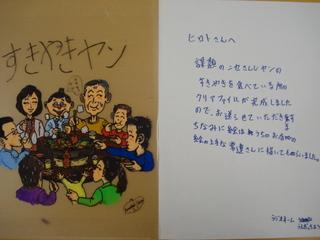 すきやきヤン
ヒカトさんへ
課題のニセさんしヤンの
すきやきを食べている所の
クリアファイルが完成しました
ので、お送らせていただきます
ちなみに絵は うちのお店の
絵の上手な常連さんに描いてもらいました。
ラジオネーム